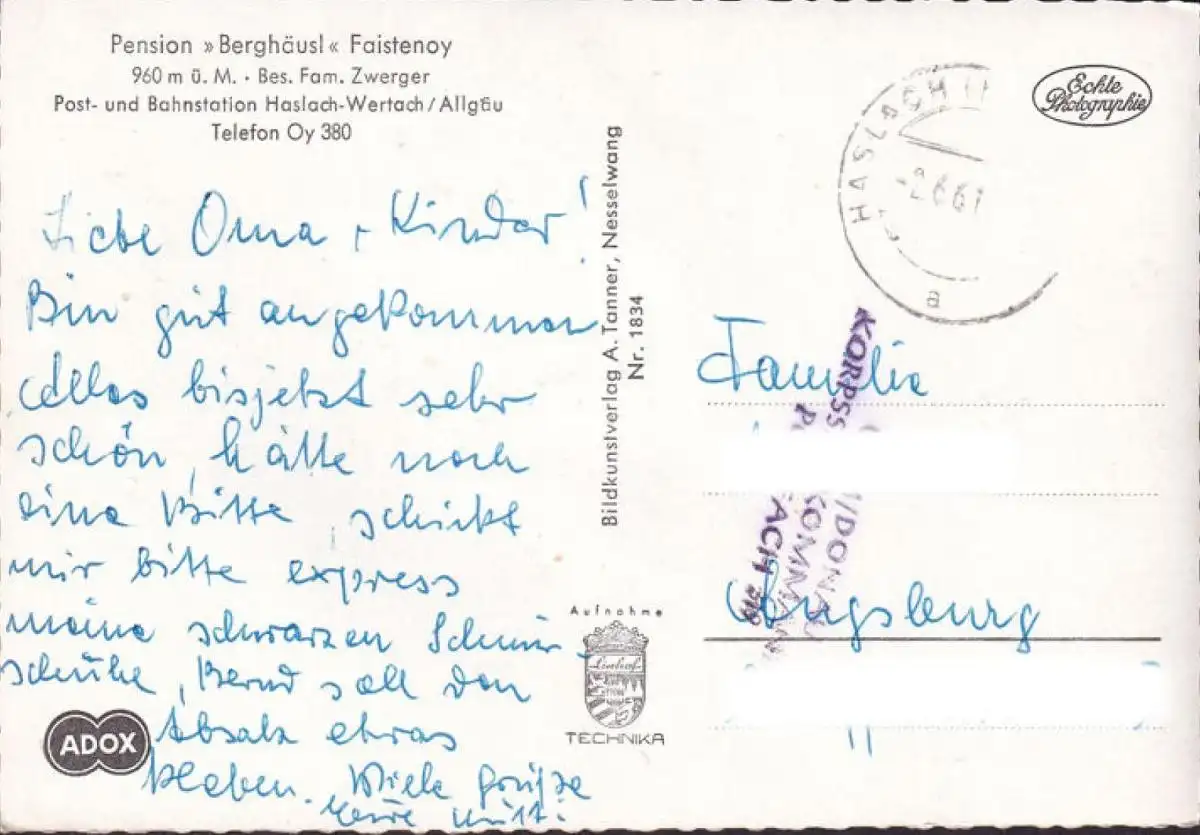 Pension »Berghäusl« Faistenoy
960 m ü. M. · Bes. Fam. Zwerger
Post- und Bahnstation Haslach-Wertach/Allgäu
Telefon Oy 380
Liebe Oma + Kinder!
Bin gut angekommen
Alles bisjetzt sehr
schön, hätte noch
eine Bitte, schickt
mir bitte express
meine schwarzen Schnür
schuhe, Bernd soll den
Absatz etwas
kleben. Viele Grüße
Eure Mutti
ADOX
Bildkunstverlag A. Tanner, Nesselwang
Nr. 1834
Aufnahme
Linhof
TECHNIKA
Echte
Photographie
HASLACH
-2.6.61
a
Familie
Augsburg
KORPSS
/DONAU
KOMMA